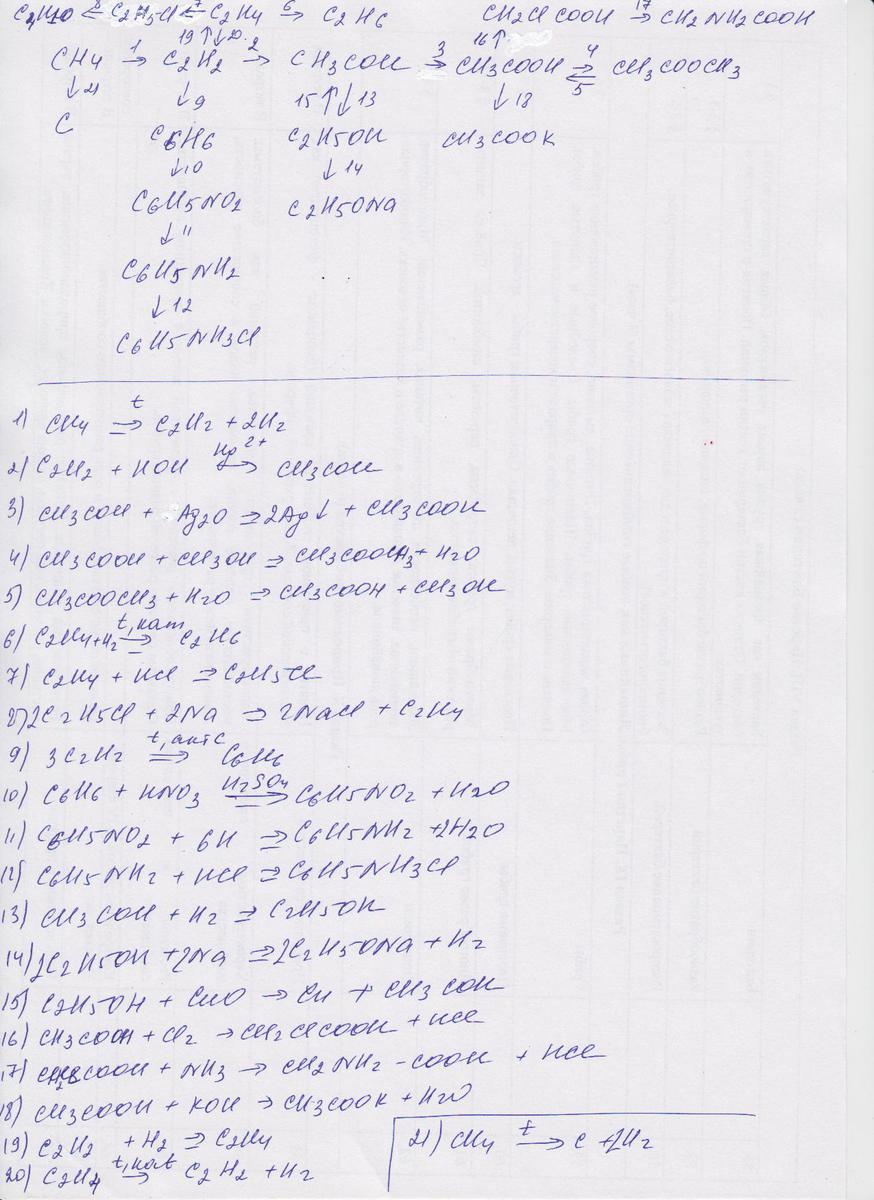 C4H10 ⁸← C2H5Cl ⁷← C2H4 ⁶→ C2H6 CH2ClCOOH ¹⁷→ CH2NH2COOH
19↑↓20. 16↑
CH4 ¹→ C2H2 ²→ CH3COH ³→ CH3COOH ⁴⇄₅ CH3COOCH3
↓21 ↓9 15↑↓13 ↓18
C C6H6 C2H5OH CH3COOK
↓10 ↓14
C6H5NO2 C2H5ONa
↓11
C6H5NH2
↓12
C6H5NH3Cl
1) CH4 t→ C2H2 + 2H2
2) C2H2 + HOH Hg2+→ CH3COH
3) CH3COH + Ag2O → 2Ag↓ + CH3COOH
4) CH3COOH + CH3OH → CH3COOCH3 + H2O
5) CH3COOCH3 + H2O → CH3COOH + CH3OH
6) C2H4 + H2 t, кат→ C2H6
7) C2H4 + HCl → C2H5Cl
8) 2C2H5Cl + 2Na → 2NaCl + C2H4
9) 3C2H2 t, акт C→ C6H6
10) C6H6 + HNO3 H2SO4→ C6H5NO2 + H2O
11) C6H5NO2 + 6H → C6H5NH2 + 2H2O
12) C6H5NH2 + HCl → C6H5NH3Cl
13) CH3COH + H2 → C2H5OH
14) 2C2H5OH + 2Na → 2C2H5ONa + H2
15) C2H5OH + CuO → Cu + CH3COH
16) CH3COOH + Cl2 → CH2ClCOOH + HCl
17) COOH + NH3 → CH2NH2-COOH + HCl
18) CH3COOH + KOH → CH3COOK + H2O
19) C2H2 + H2 → C2H4
20) C2H4 t, кат→ C2H2 + H2
21) CH4 t→ C + 2H2